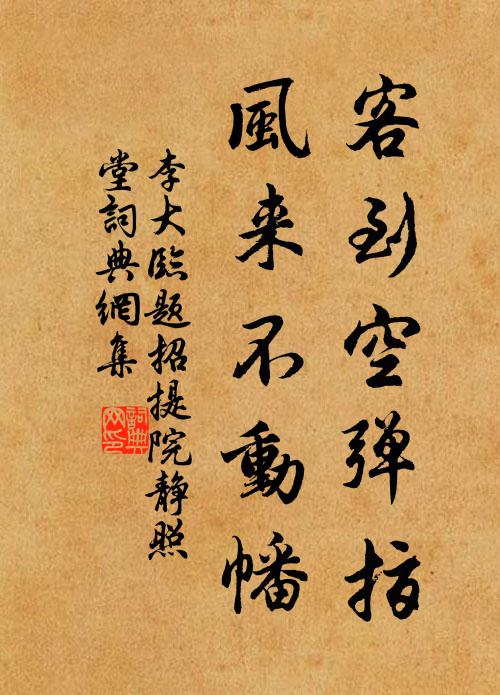 客到空弹指
風来不動幡
李大臨题招提院静照
堂詞典網集
詞典网印